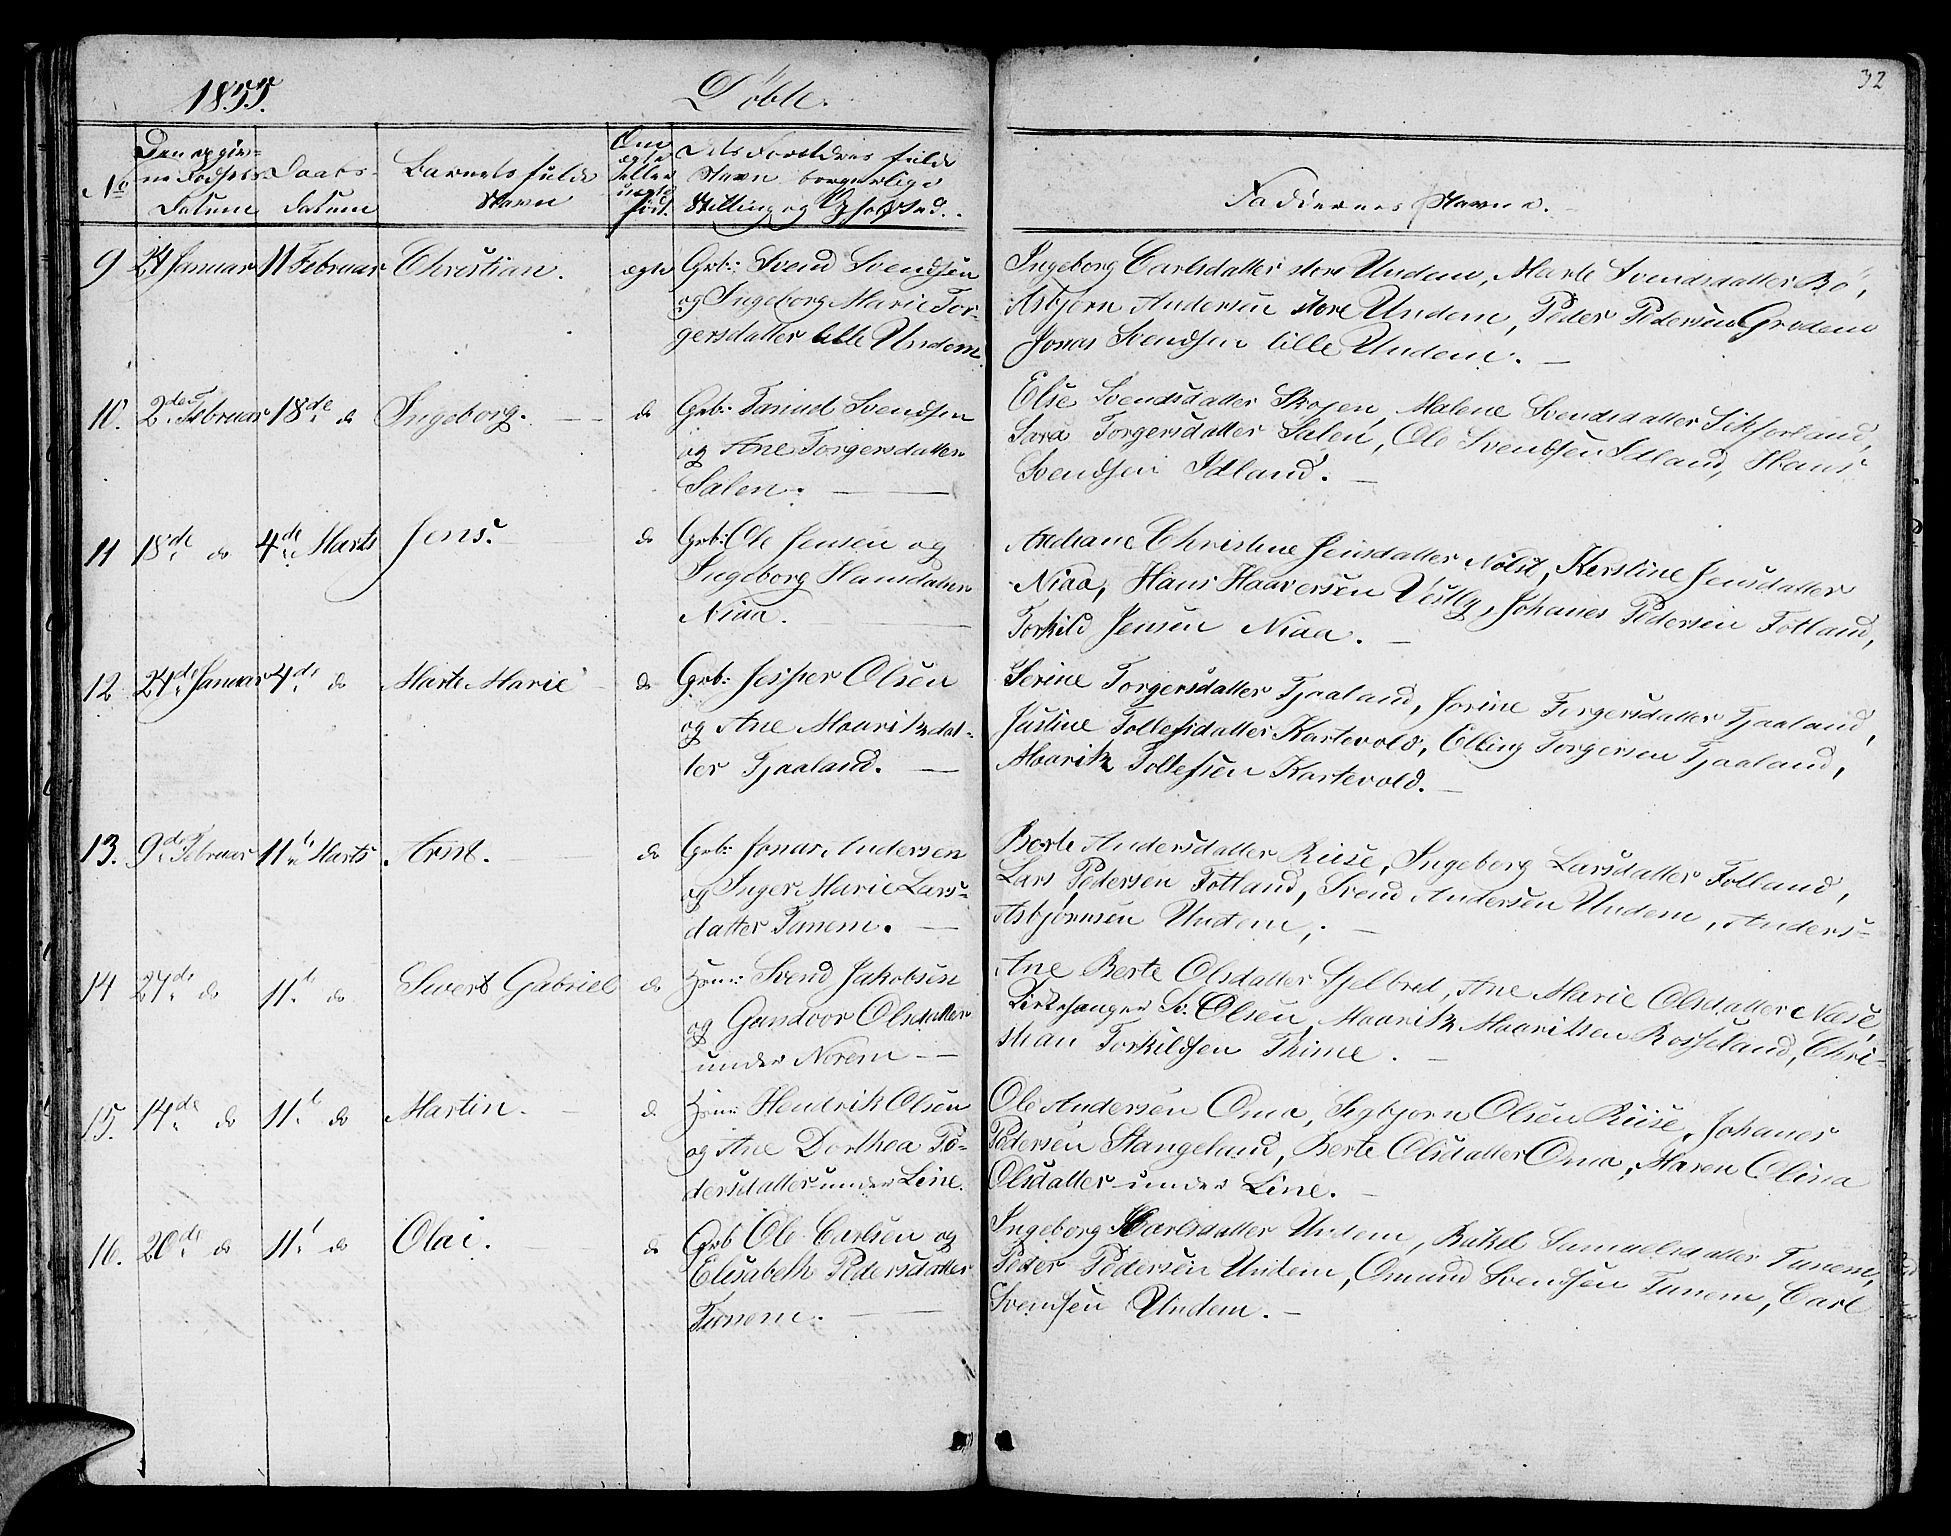 1855.
Döbte.
32
No
Den opgiv=
ne Fødsels
Datum
Daabs-
Datum
Barnets fulde
Navn
Om
ægte
eller
uægte
født.
Dets Forældres fulde
Navn borgerlige
Stilling og Opholdssted.
Faddernes Navne.
9
24 Januar
11 Februar
Christian.
ægte
Grb: Svend Svendsen
og Ingeborg Marie Tor-
gersdatter lille Undem.
Ingeborg Carlsdatter store Undem, Marte Svendsdatter Bö,
Asbjörn Andersen store Undem, Peder Pedersen Grudem
Jonas Svendsen lille Undem. —
10.
2den Februar
18de do
Ingeborg.
do
Grb: Svendsen
og Ane Torgersdatter
Salen. —
Else Svendsdatter Skogen, Malene Svendsdatter
Sara Torgersdatter Salen, Ole Svendsen Idland, Hans
Svendsen Idland. —
11
18de do
4de Marts
Jens.
do
Grb: Ole Jensen og
Ingeborg Hansdatter
Niaa.
Christine Jensdatter Kerstine Jensdatter
Niaa, Hans Haaversen Vestly, Johanes Pedersen Fotland,
Torkild Jensen Niaa. —
12
24de Januar
4de do
Marte Marie
do
Grb: Jesper Olsen
og Ane Mauritzdat-
ter Tjaaland. —
Serine Torgersdatter Tjaaland, Jorine Torgersdatter Tjaaland,
Justine Tollefsdatter Kartevold, Elling Torgersen Tjaaland,
Mauritz Tollefsen Kartevold. —
13.
9de Februar
11t Marts
Arnt.
do
Grb: Jonas Andersen
og Inger Marie Lars=
datter Tunem. —
Berte Andersdatter Riise, Ingeborg Larsdatter Fotland,
Lars Pedersen Fotland, Svend Andersen Undem, Anders=
Asbjörnsen Undem, —
14
27de do
11t do
Sivert Gabriel
do
Hsm: Svend Jakobsen
og Gundvor Olsdatter
under Norem —
Ane Berte Olsdatter Ane Marie Olsdatter Næse,
Kirkesanger Olsen, Mauritz Mauritsen Rosseland, Chri-
stian Torkildsen Thime. —
15.
14de do
11t do
Martin.
do
Hsm: Hendrik Olsen
og Ane Dorthea Tö-
dersdatter under Line.
Ole Andersen Oma, Sigbjorn Olsen Riise, Johanes
Pedersen Stangeland, Berte Olsdatter Oma, Maren Olina
Olsdatter under Line. —
16.
20de do
11t do
Olai.
do
Grb Ole Carlsen og
Elisabeth Pedersdatter
Tunem. —
Ingeborg Carlsdatter Undem, Rakel Samuelsdatter Tunem,
Peder Pedersen Undem, Omund Svendsen Tunem, Carl
Svendsen Undem. —